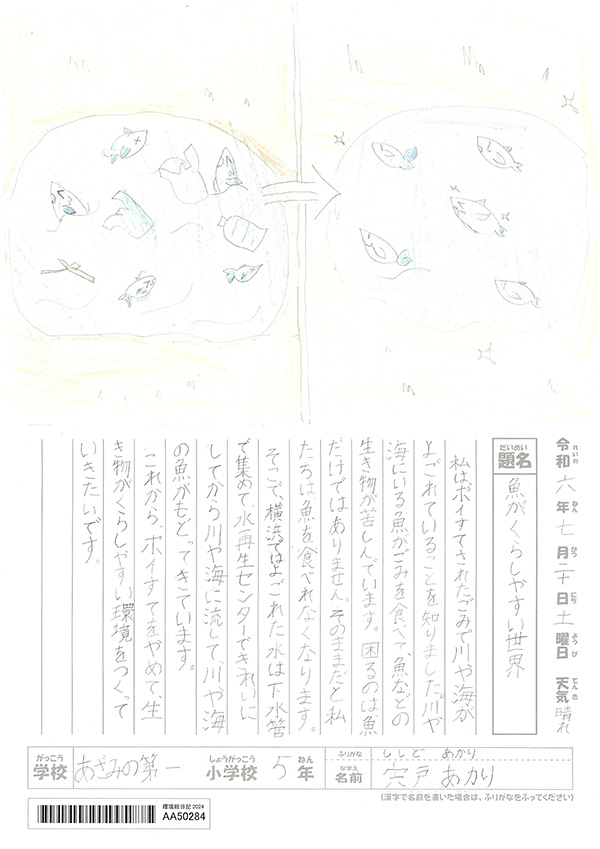 令和六年七月二十日土曜日 天気 晴れ
れいわ ねん がつ にち ようび てんき
題名 魚がくらしやすい世界
だいめい
私はポイすてされたごみで川や海が
よごれていることを知りました。川や
海にいる魚がごみを食べて、魚などの
生き物が苦しんでいます。困るのは魚
だけではありません。そのままだと私
たちは魚を食べれなくなります。
そこで、横浜ではよごれた水は下水管
で集めて、水再生センターできれいに
してから川や海に流して、川や海
の魚がもどってきています。
これから、ポイすてをやめて、生
き物がくらしやすい環境をつくって
いきたいです。
がっこう しょうがっこう ねん ふりがな ししど あかり
学校 あざみの第一 小学校 5年 なまえ 名前 宍戸 あかり
(漢字で名前を書いた場合は、ふりがなをふってください)
環境絵日記2024
AA50284